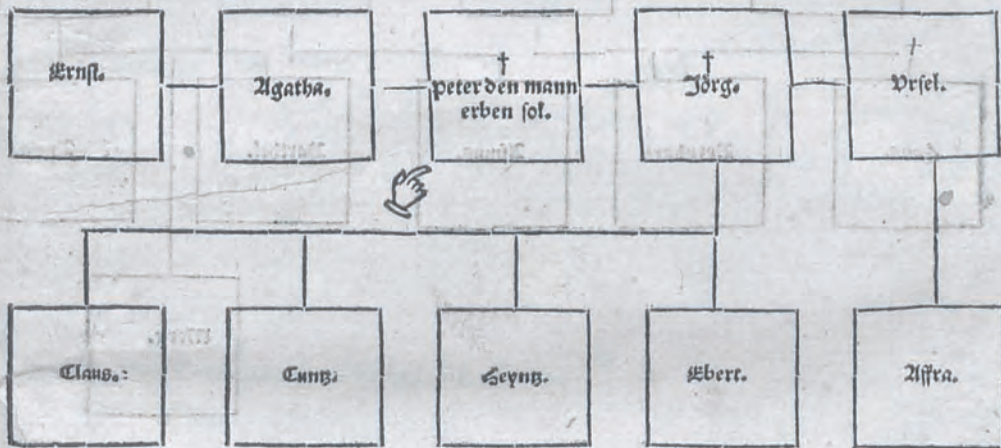 Ernst.
Agatha.
†
peter den mann
erben sol.
†
Jörg.
†
Vrsel.
Claus.:
Cuntz.
Heyntz.
Ebert.
Affra.